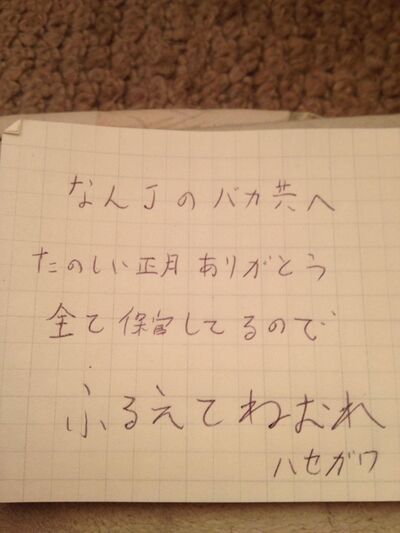 なんJのバカ共へ
たのしい正月ありがとう
全て保管してるので
ふるえてねむれ
ハセガワ